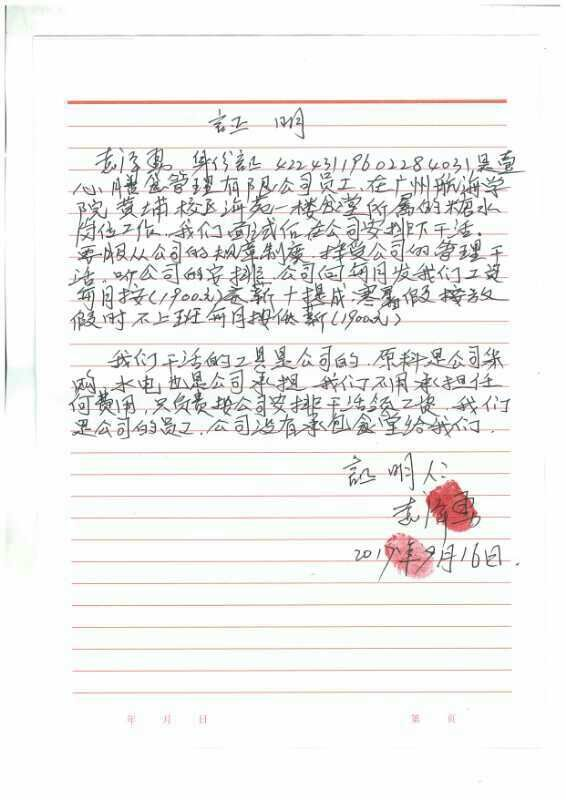 証 明
李泽勇 身份証 42243119602284031是壹
心膳食管理有限公司员工,在广州航海学
院黄埔校区海苑一楼食堂所属的糖水
岗位工作,我们面试后在公司安排下干活。
要服从公司的规章制度,接受公司的管理干
活,听公司的安排,公司向每月发我们工资
每月按(1900元)底薪+提成,寒暑假按放
假时不上班每月按底薪(1900元)
我们干活的工具是公司的,原料是公司采
购,水电也是公司承担,我们不用承担任
何费用,只负责按公司安排干活领工资,我们
是公司的员工,公司没有承包食堂给我们.
証明人:
李泽勇
2017年9月16日.
年 月 日
第 页